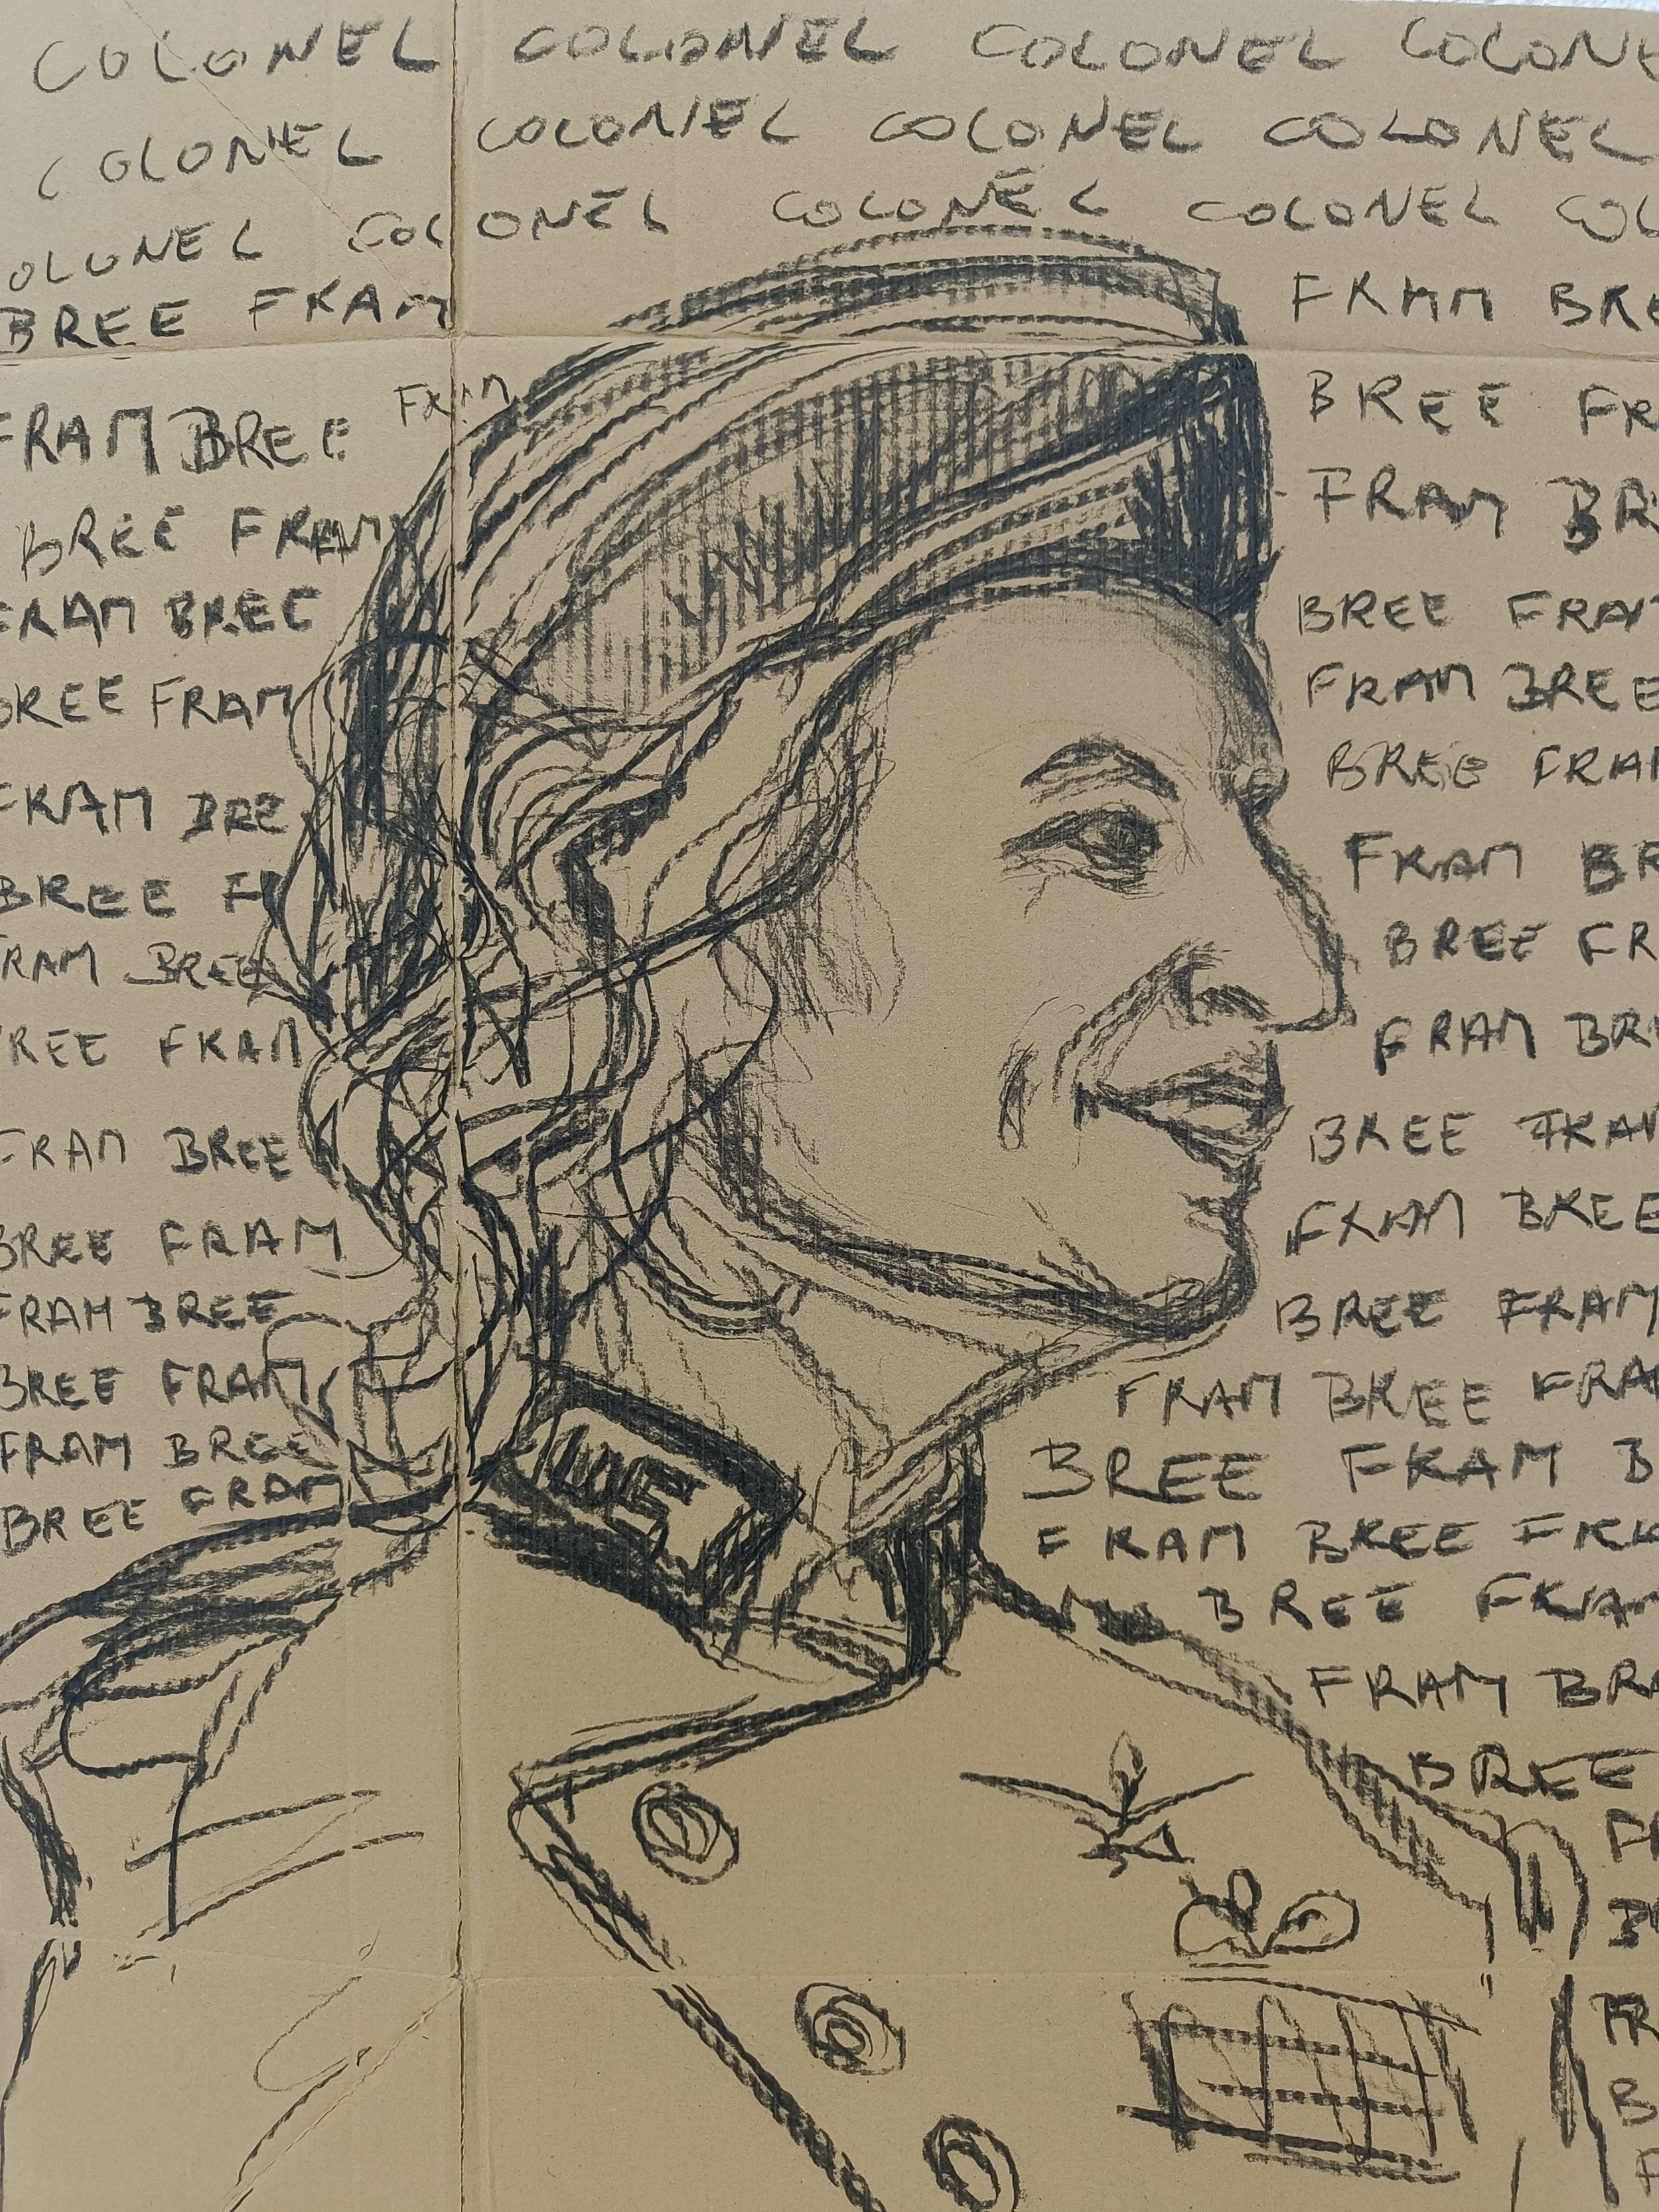 COLONEL COLONEL COLONEL COLONE
COLONEL COLONEL COLONEL COLONEL
OLONEL COLONEL COLONEL COLONEL COL
BREE FRAM FRAM BRE
FRAM BREE FRAM BREE FR
BREE FRAM FRAM BR
FRAM BREE BREE FRAM
BREE FRAM FRAM BREE
FRAM BRE BREE FRAM
BREE F FRAM BR
RAM BREE BREE FR
REE FRAM FRAM BR
FRAM BREE BREE FRAM
BREE FRAM FRAM BREE
FRAM BREE BREE FRAM
BREE FRAM FRAM BREE FRA
FRAM BREE BREE FRAM B
BREE FRAM FRAM BREE FR
BREE FRAM
FRAM BR
BREE
FR
B
FR
B
F